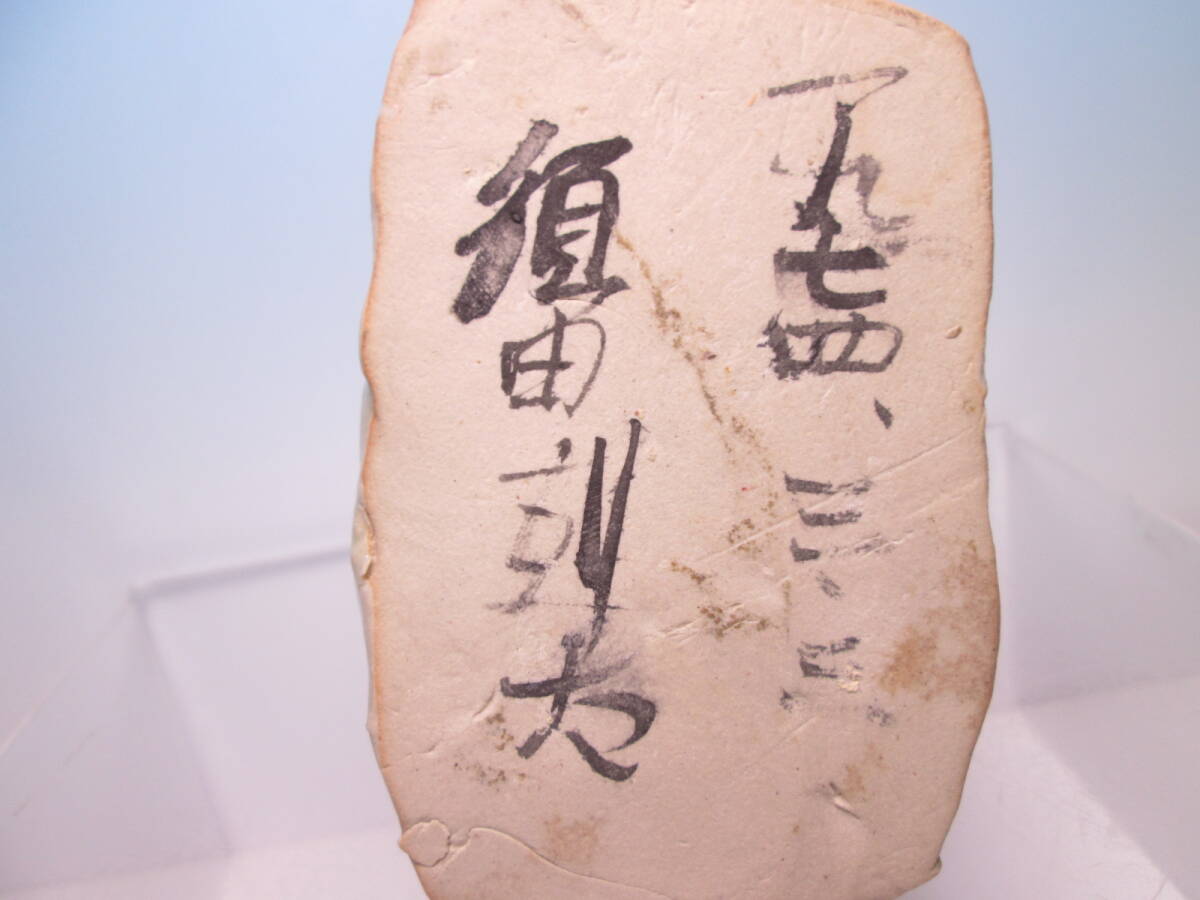 一九七四、三、三
須田剋太